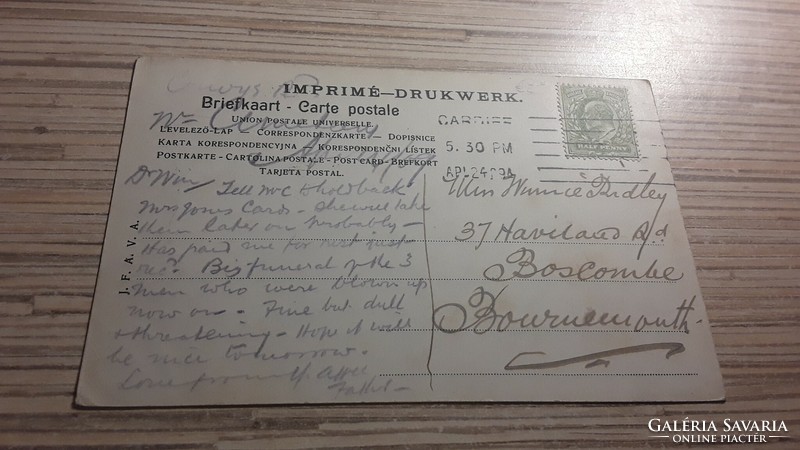 IMPRIMÉ—DRUKWERK.
Briefkaart - Carte postale
UNION POSTALE UNIVERSELLE.
LEVELEZŐ-LAP - CORRESPONDENZKARTE - DOPISNICE
KARTA KORESPONDENCYJNA - KORESPONDENČNI LÍSTEK
POSTKARTE - CARTOLINA POSTALE - POST CARD - BREFKORT
TARJETA POSTAL.
CARDIFF
5.30 PM
HALF PENNY
J. F. A. V. A.
Dr Win Tell Mc C to hold back
Mrs Jones Cards - she will take
them later on probably -
Has paid me for
Big funeral of the 3
men who were blown up
now on - Fine but dull
& threatening - Hope it will
be nice tomorrow.
Love from
Father -
Miss Winnie
37 Haviland Rd
Boscombe
Bournemouth
GALÉRIA SAVARIA
ONLINE PIACTÉR